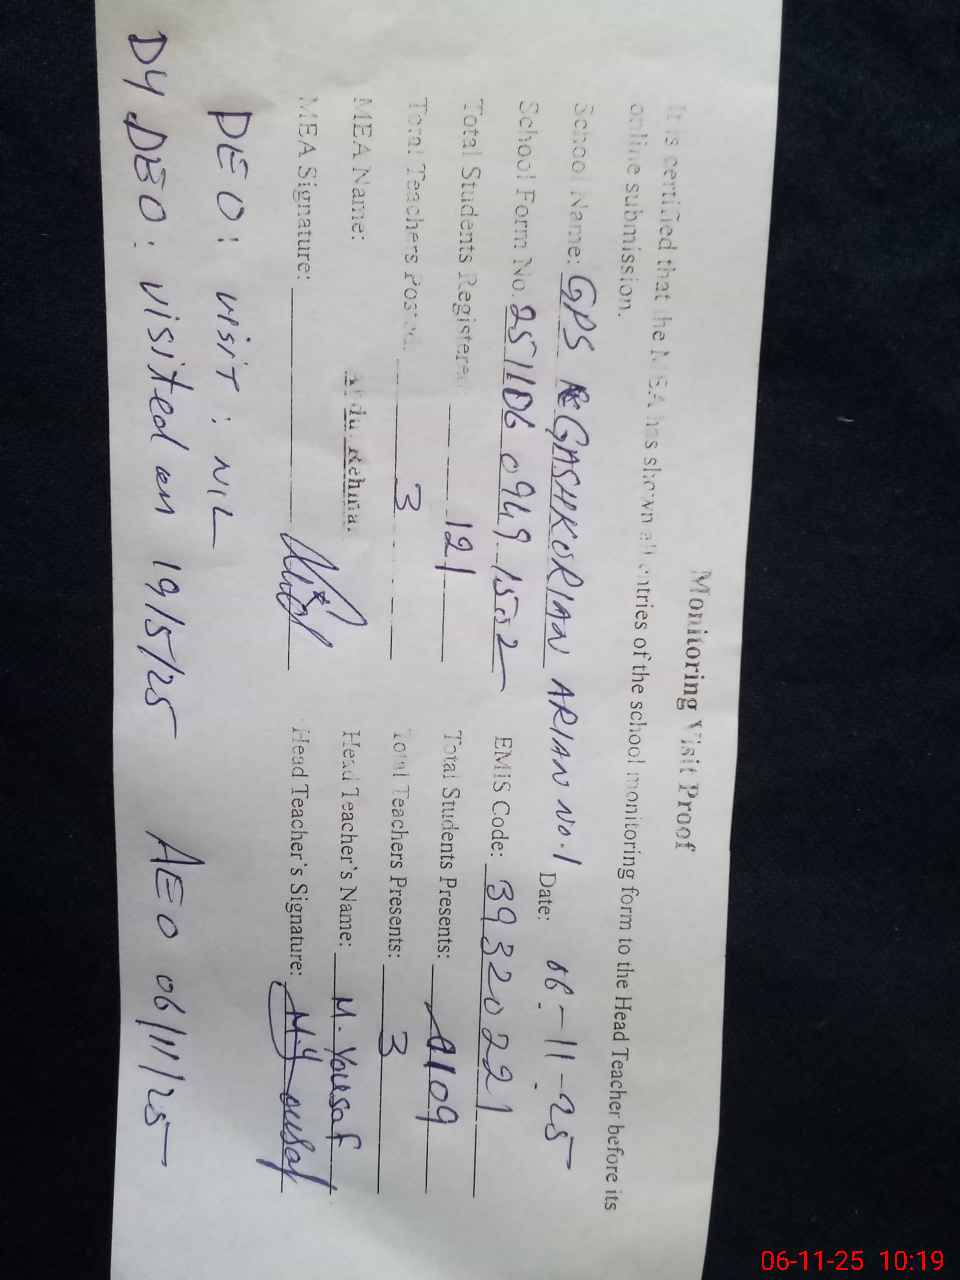 Monitoring Visit Proof
It is certified that the MEA has shown all entries of the school monitoring form to the Head Teacher before its
online submission.
School Name: GPS GASHKORIAN ARIAN No.1 Date: 06-11-25
School Form No. 251106 0949 1502 EMIS Code: 39320221
Total Students Registered 121 Total Students Presents: 109
Total Teachers Posted: 3 Total Teachers Presents: 3
MEA Name: Abdul Rehman Head Teacher's Name: M. Yousaf
MEA Signature: Head Teacher's Signature: M. Yousaf
DEO: visit: NIL
DY DEO: visited on 19/5/25 AEO 06/11/25
06-11-25 10:19